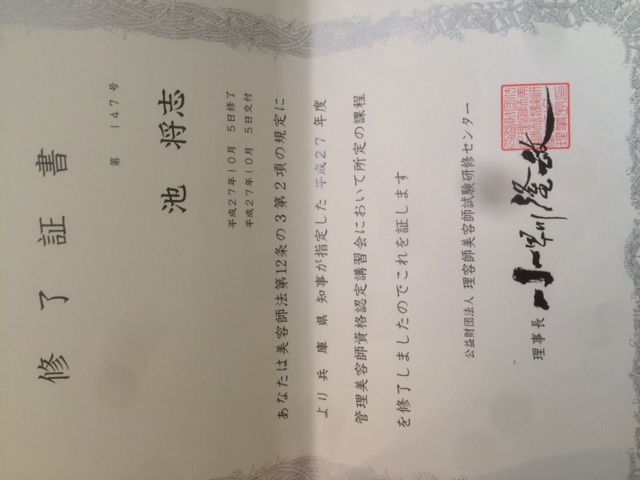 修了証書
第 147 号
池 将志
平成27年10月 5日修了
平成27年10月 5日交付
あなたは美容師法第12条の3第2項の規定に
より 兵 庫 県 知事が指定した 平成27 年度
管理美容師資格認定講習会において所定の課程
を修了しましたのでこれを証します
公益財団法人 理容師美容師試験研修センター
理事長